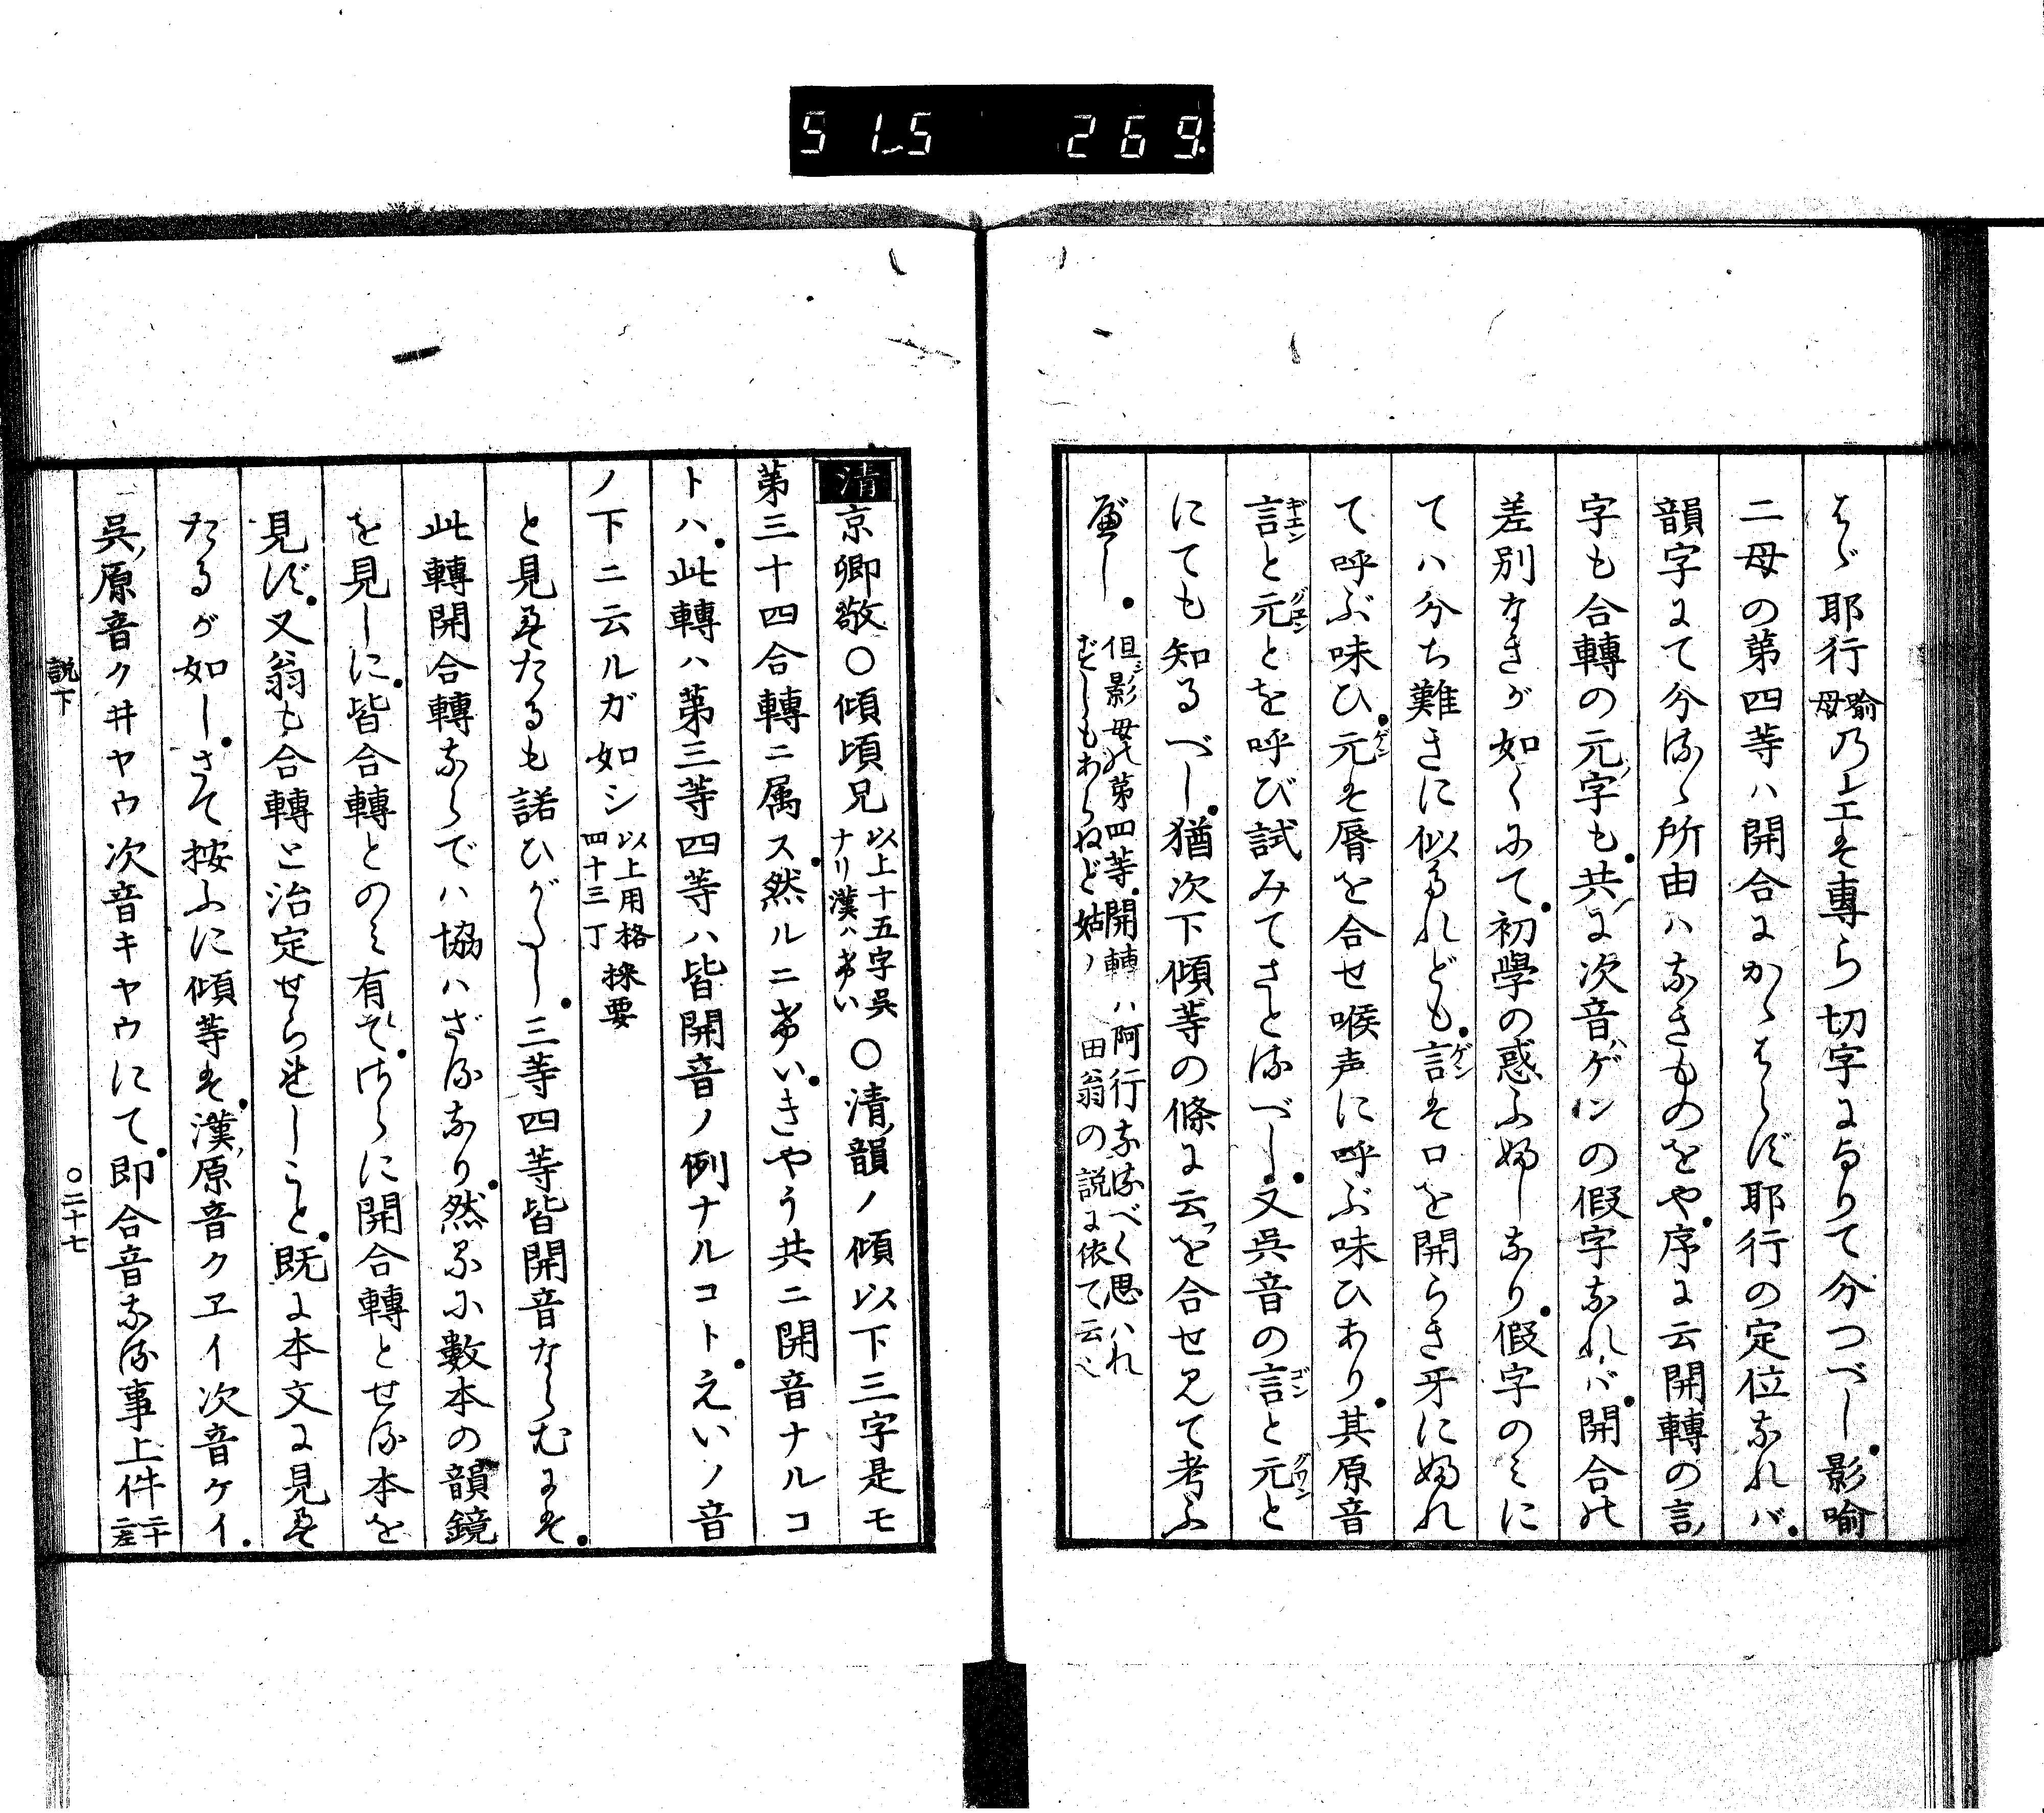 51.5 269.
らゞ耶行喩母乃エは專ら切字によりて分つべし影喩
二母の第四等ハ開合にかゝはらず耶行の定位なれバ
韻字にて分る所由ハなきものをや序に云開轉の言
字も合轉の元字も共に次音ゲンの假字なれバ開合の
差別なきが如くにて初學の惑ふ婦しなり假字のミに
てハ分ち難きに似たれども言ゲンは口を開らき牙に婦れ
て呼ぶ味ひ元ゲンは唇を合せ喉声に呼ぶ味ひあり其原音
言ギエンと元グヱンとを呼び試みてさとるべし又呉音の言ゴンと元グワンと
にても知るべし猶次下傾等の條に云を合せ見て考ふ
べし但シ影母の第四等開轉ハ阿行なるべく思ハれ
ざしもあらねど姑ク田翁の説に依て云へ
清京卿敬〇傾頃兄以上十五字呉ナリ漢ハ〇清韻ノ傾以下三字是モ
第三十四合轉ニ属ス然ルニいきやう共ニ開音ナルコ
トハ此轉ハ第三等四等ハ皆開音ノ例ナルコトえいノ音
ノ下ニ云ルガ如シ以上用格四十三丁採要
と見えたるも諾ひがたし三等四等皆開音ならむには
此轉開合轉ならでハ協ハざるなり然るに數本の韻鏡
を見しに皆合轉とのミ有てに開合轉とせる本を
見ず又翁も合轉と治定せられしこと既に本文に見え
たるが如しさて按ふに傾等は漢原音クヱイ次音ケイ
呉原音クヰヤウ次音キヤウにて即合音なる事上件二十二差
説下 〇二十七